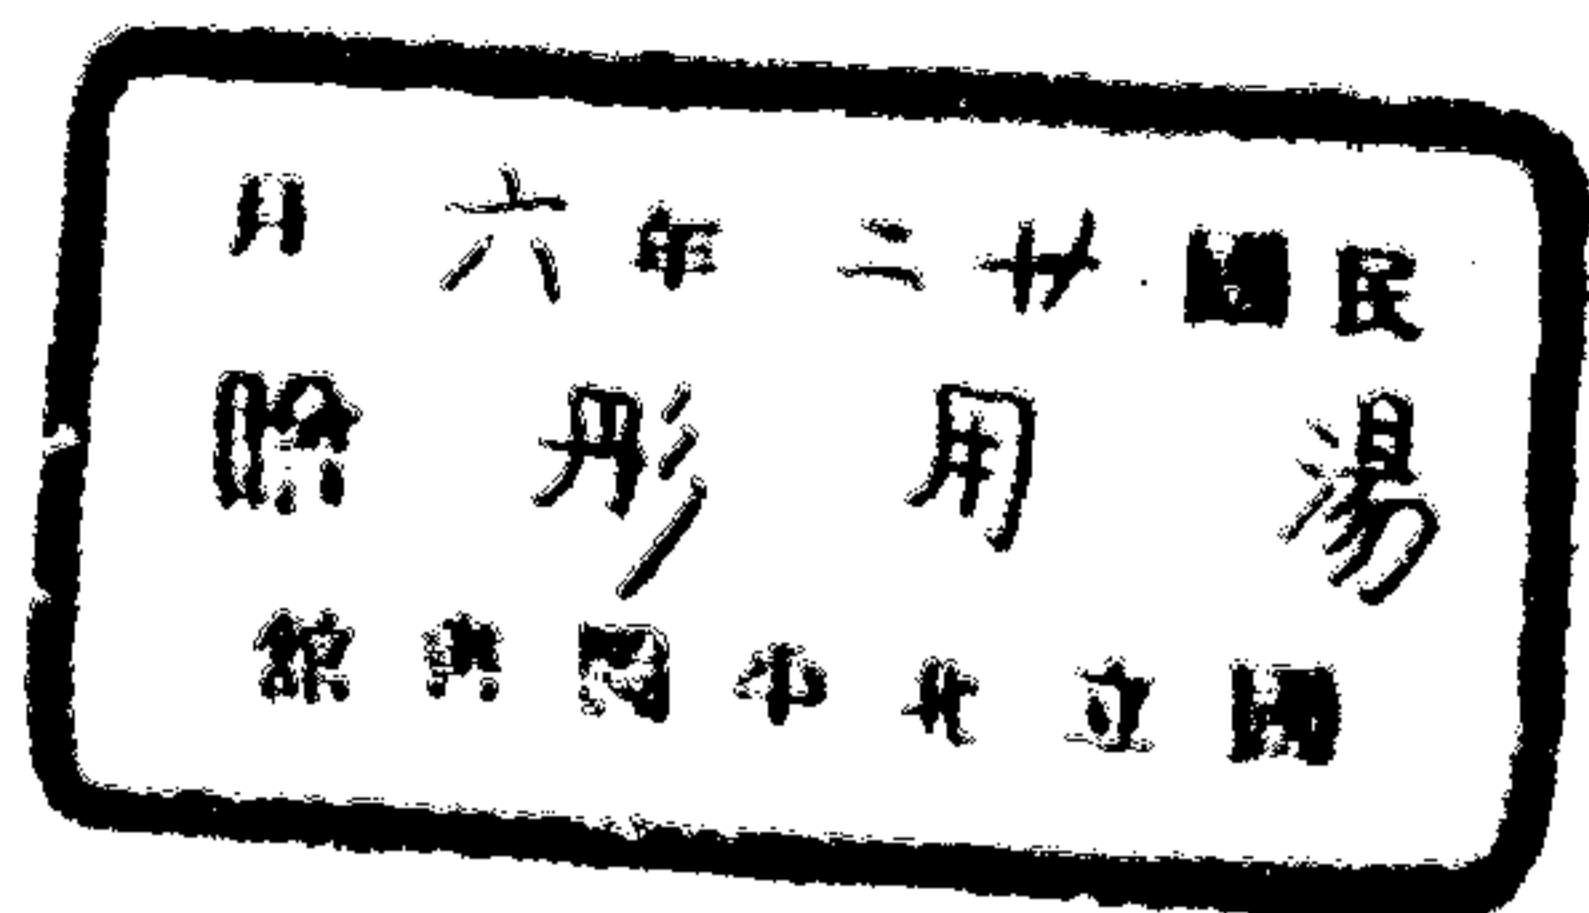 民國廿二年六月
湯用彤贈
國立北平圖書館